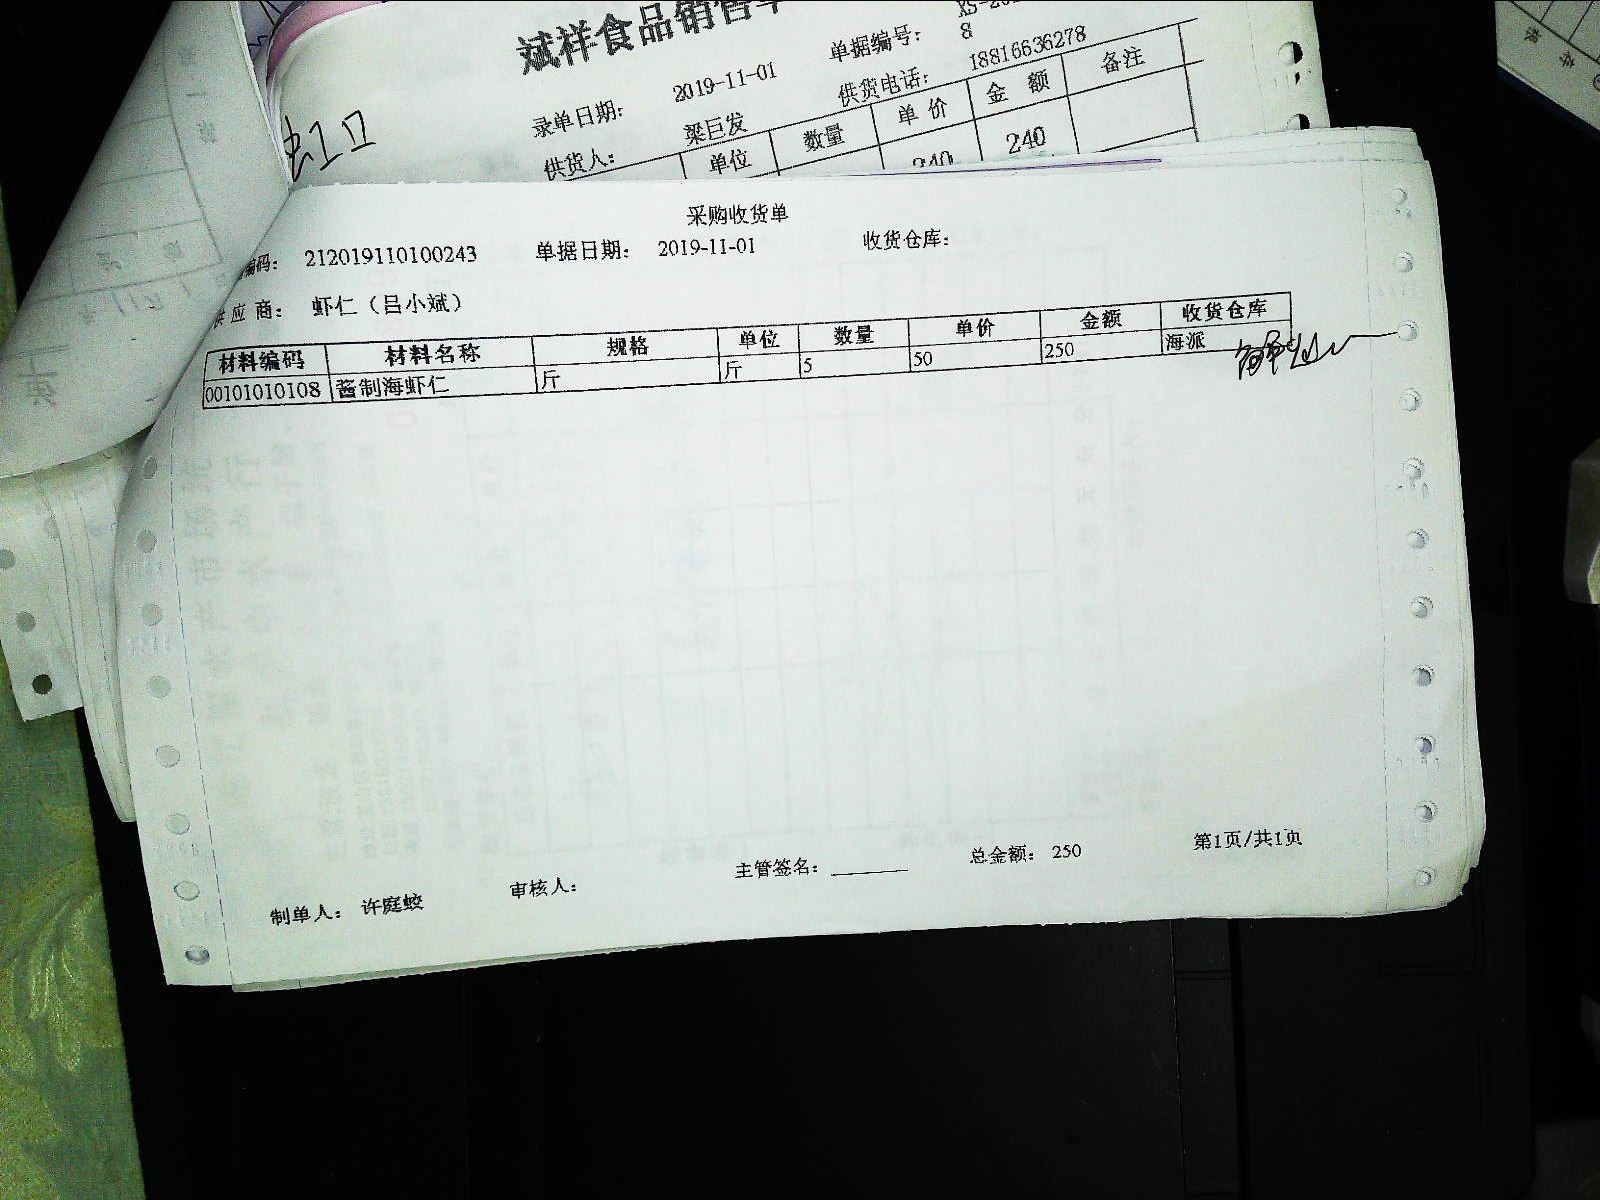 斌祥食品销售单
单据编号： 8
录单日期： 2019-11-01
供货电话： 18816636278
供货人： 梁巨发
单位 数量 单价 金额 备注
240 240
虹口
采购收货单
编码： 212019110100243 单据日期： 2019-11-01 收货仓库：
供应商： 虾仁（吕小斌）
材料编码 材料名称 规格 单位 数量 单价 金额 收货仓库
00101010108 酱制海虾仁 斤 斤 5 50 250 海派
制单人： 许庭蛟 审核人： 主管签名： 总金额： 250 第1页/共1页